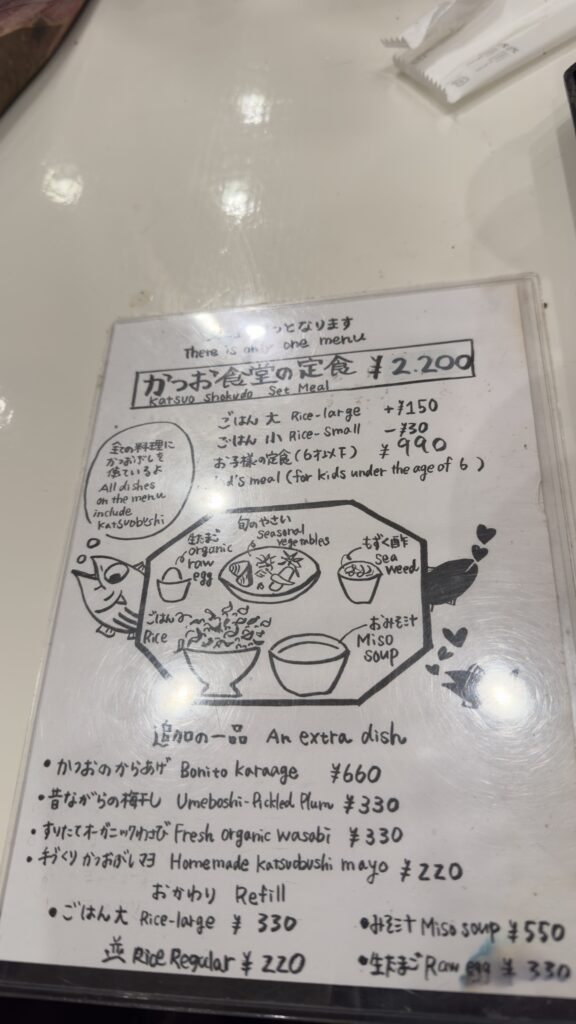 となります
There is only one menu
かつお食堂の定食 ¥2.200
Katsuo Shokudo Set Meal
ごはん 大 Rice-large +¥150
ごはん 小 Rice-small -¥30
お子様の定食(6才以下) ¥990
d's meal (for kids under the age of 6)
全ての料理に
かつおぶしを
使ているよ
All dishes
on the menu
include
Katsuobushi
生たまご
organic
raw
egg
旬のやさい
seasonal
vegetables
もずく酢
sea
weed
ごはん
Rice
おみそ汁
Miso
soup
追加の一品 An extra dish
・かつおのからあげ Bonito karaage ¥660
・昔ながらの梅干し Umeboshi-Pickled Plum ¥330
・すりたてオーガニックわさび Fresh organic wasabi ¥330
・手づくりかつおぶしマヨ Homemade katsuobushi mayo ¥220
おかわり Refill
・ごはん大 Rice-large ¥330
並 Rice Regular ¥220
・みそ汁 Miso soup ¥550
・生たまご Raw egg ¥330